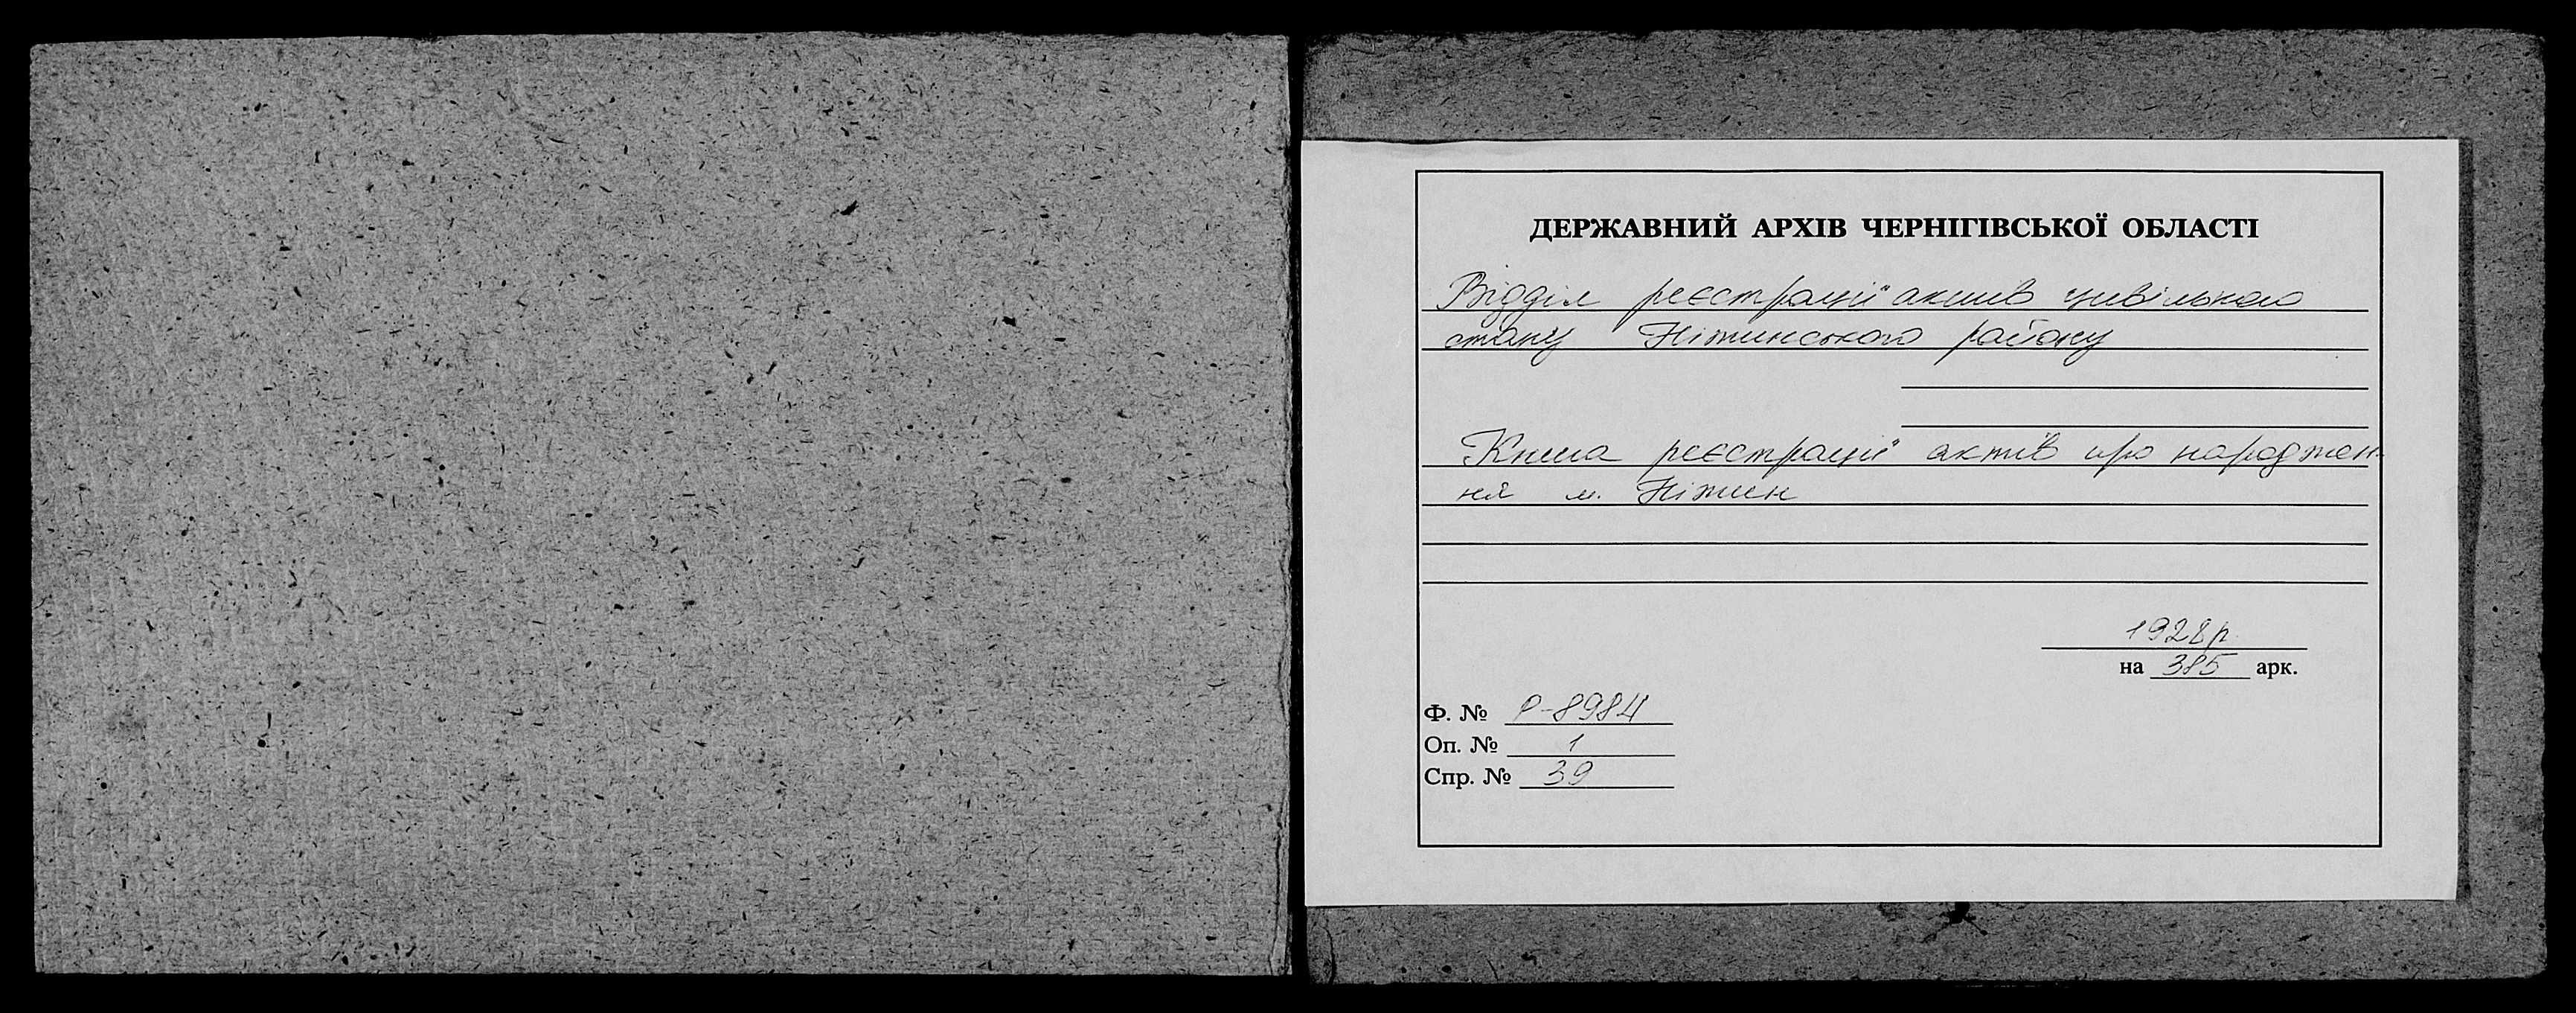 ДЕРЖАВНИЙ АРХІВ ЧЕРНІГІВСЬКОЇ ОБЛАСТІ
Відділ реєстрації актів цивільного
стану Ніжинського району
Книга реєстрації актів про народжен-
ня м. Ніжин
1928р.
на 385 арк.
Ф. № Р-8984
Оп. № 1
Спр. № 39